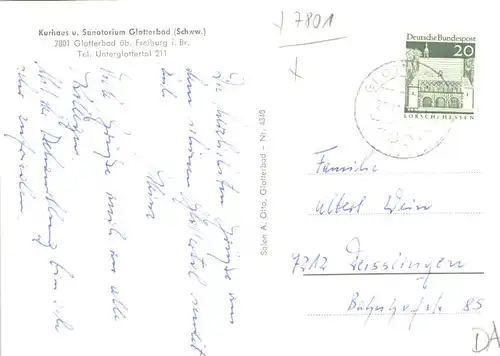 Kurhaus u. Sanatorium Glotterbad (Schww.)
7801 Glotterbad üb. Freiburg i. Br.
Tel. Unterglottertal 211
7801
Deutsche Bundespost
20
LORSCH/HESSEN
Die herzlichsten Grüße aus
dem schönen Glottertal sendet
Euch
Viele Grüße auch an alle
Kollegen
Mit der Behandlung bin ich
sehr zufrieden.
Salon A. Otto, Glotterbad - Nr. 4340
Familie
Albert Wein
7212 Deisslingen
Bahnhofstr 85
DA